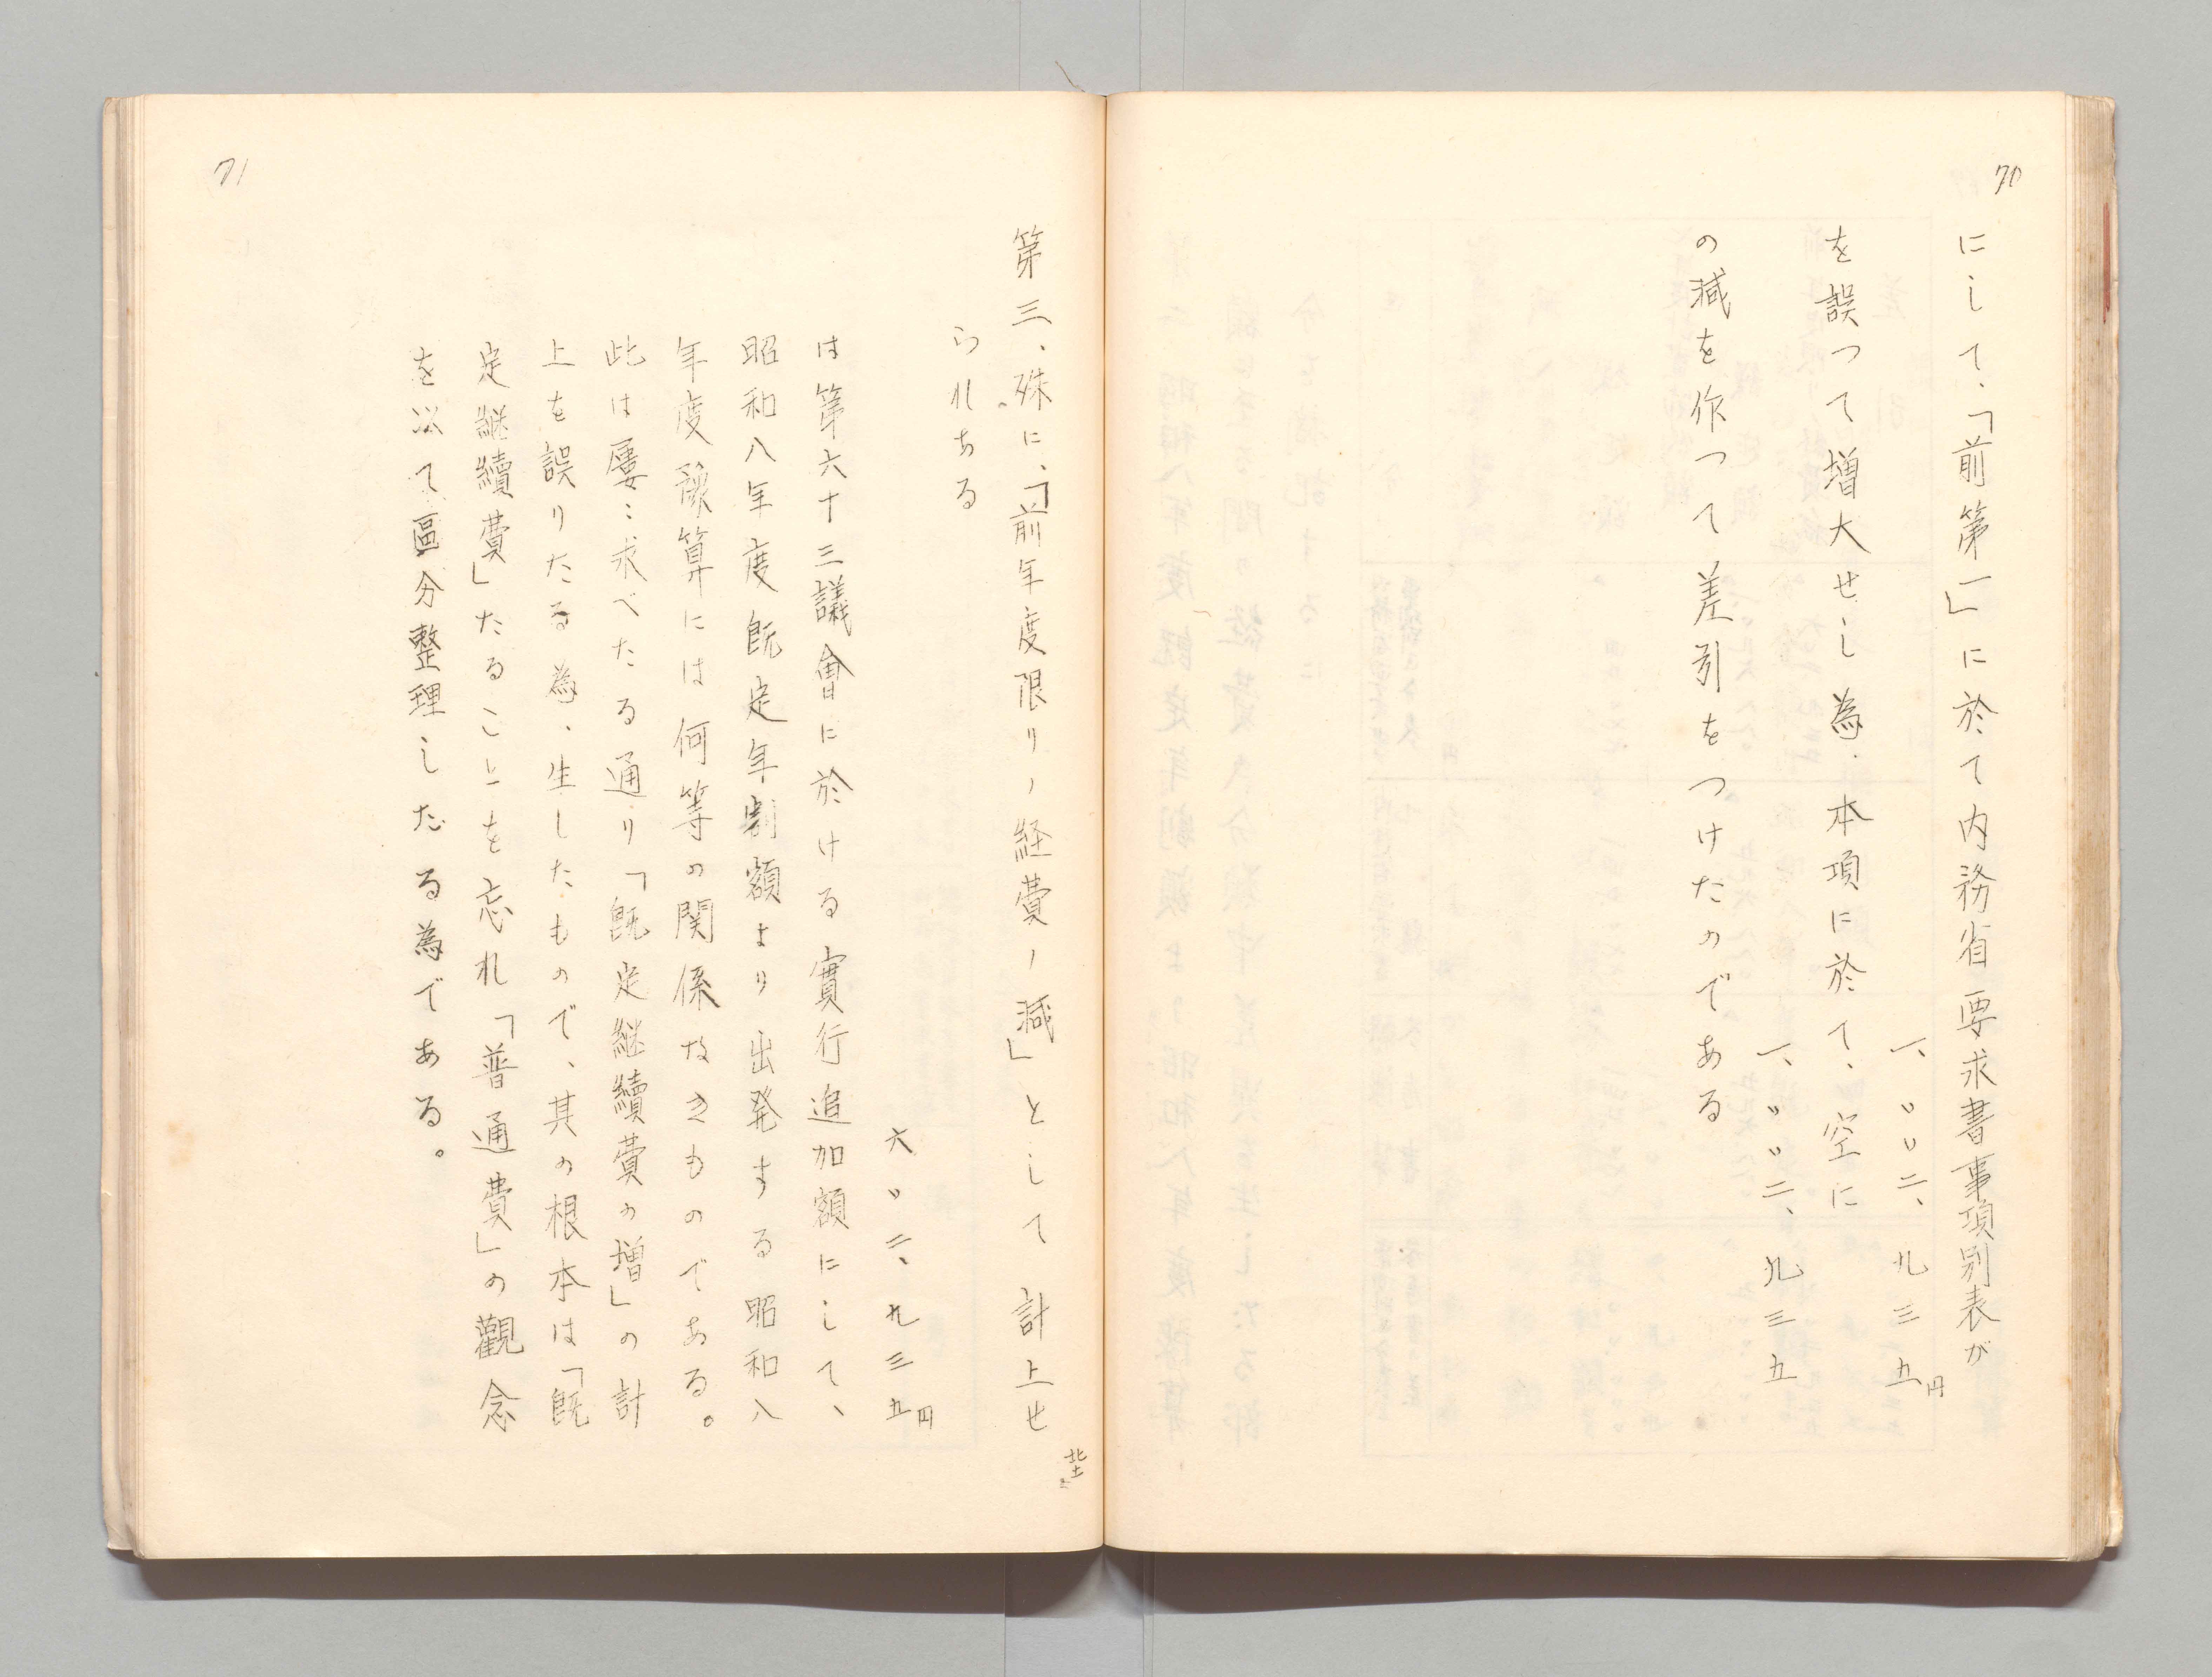 70
にして、「前第一」に於て内務省要求書事項別表が
一、〃〃二、九三五円
を誤つて増大せし為、本項に於て、空に
一、〃〃二、九三五
の減を作つて差引をつけたのである
第三、殊に、「前年度限リノ経費ノ減」として計上せ
られある
六〃二、九三五円
は第六十三議會に於ける實行追加額にして、
昭和八年度既定年割額より出発する昭和八
年度豫算には何等の関係なきものである。
此は屢〻求べたる通り「既定継續費の増」の計
上を誤りたる為、生したもので、其の根本は「既
定継續費」たることを忘れ「普通費」の觀念
を以て區分整理したる為である。
71